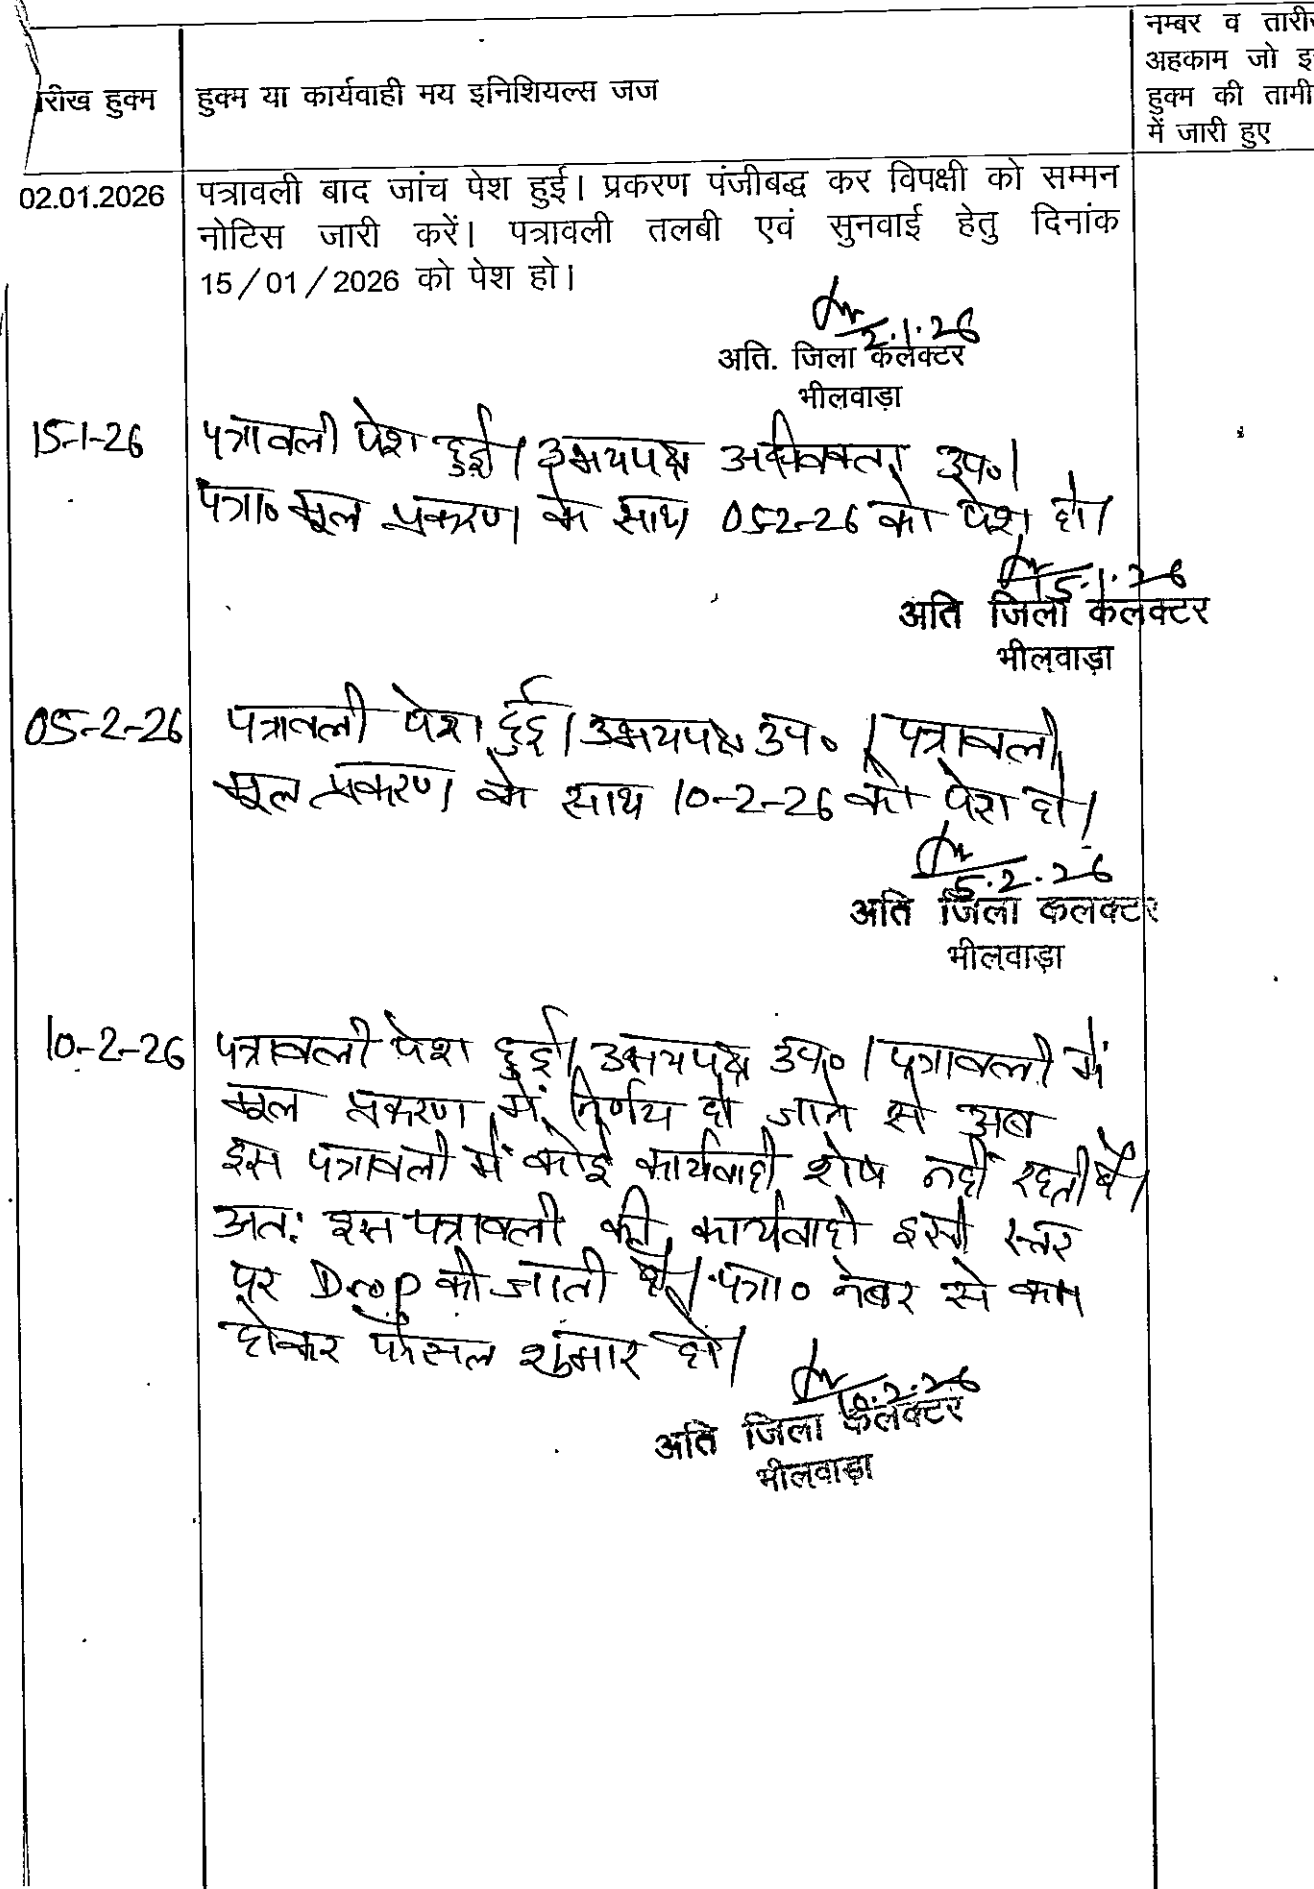 नम्बर व तारीख
अहकाम जो इस
हुक्म की तामी
में जारी हुए
रीख हुक्म
हुक्म या कार्यवाही मय इनिशियल्स जज
02.01.2026
पत्रावली बाद जांच पेश हुई। प्रकरण पंजीबद्ध कर विपक्षी को सम्मन
नोटिस जारी करें। पत्रावली तलबी एवं सुनवाई हेतु दिनांक
15/01/2026 को पेश हो।
2.1.26
अति. जिला कलेक्टर
भीलवाड़ा
15-1-26 पत्रावली पेश हुई। उभयपक्ष अधिवक्ता उप०।
पत्रा० मूल प्रकरण के साथ 05-2-26 को पेश हो।
15.1.26
अति जिला कलेक्टर
भीलवाड़ा
05-2-26 पत्रावली पेश हुई। उभयपक्ष उप०। पत्रावली
मूल प्रकरण के साथ 10-2-26 को पेश हो।
5.2.26
अति जिला कलक्टर
भीलवाड़ा
10-2-26 पत्रावली पेश हुई। उभयपक्ष उप०। पत्रावली में
मूल प्रकरण में निर्णय हो जाने से अब
इस पत्रावली में कोई कार्यवाही शेष नहीं रहती है।
अतः इस पत्रावली की कार्यवाही इसी स्तर
पर Drop की जाती है। पत्रा० नंबर से कम
होकर फैसल शुमार हो।
10.2.26
अति जिला कलेक्टर
भीलवाड़ा